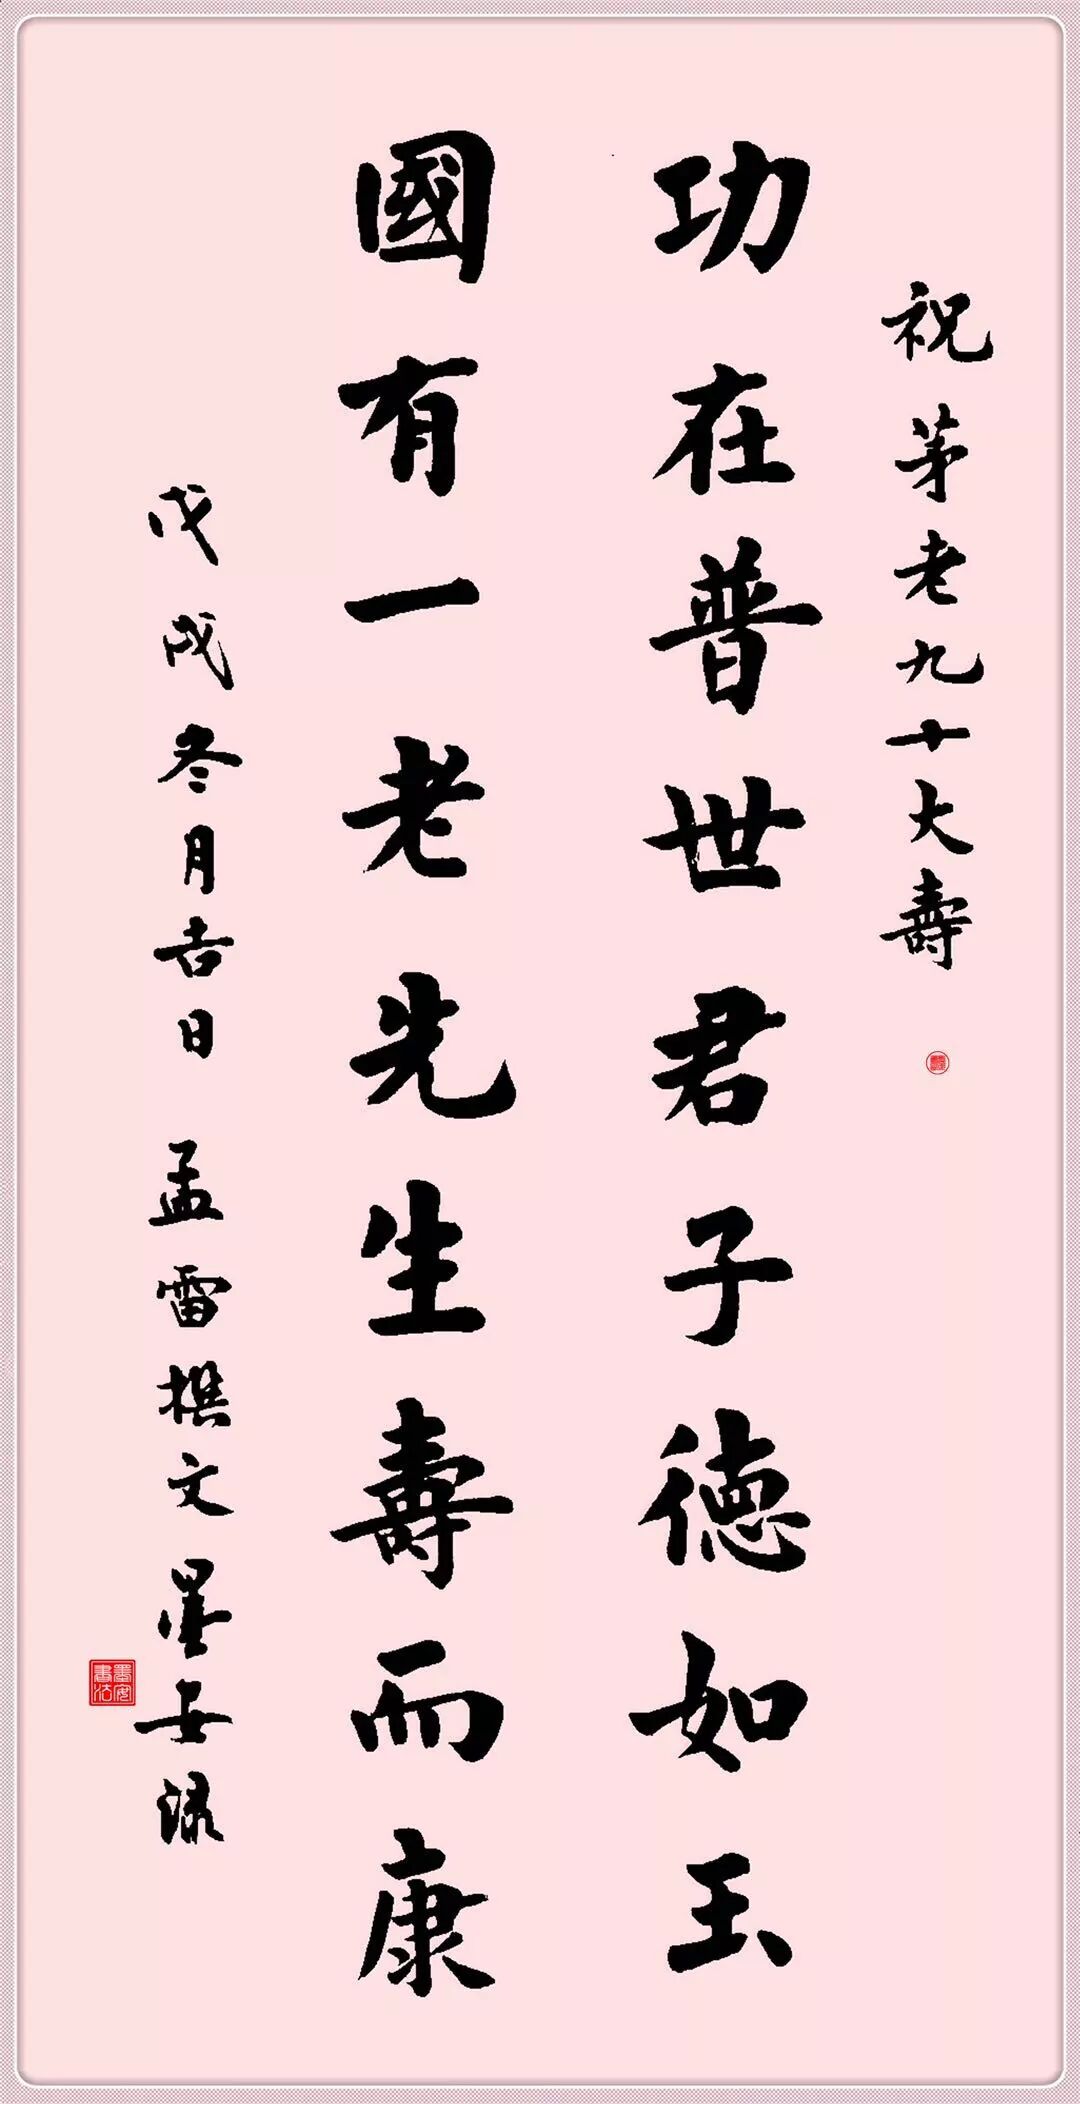 祝茅老九十大壽
功在普世君子德如玉
國有一老先生壽而康
戊戌冬月吉日 孟雷撰文 墨安錄
墨安書法